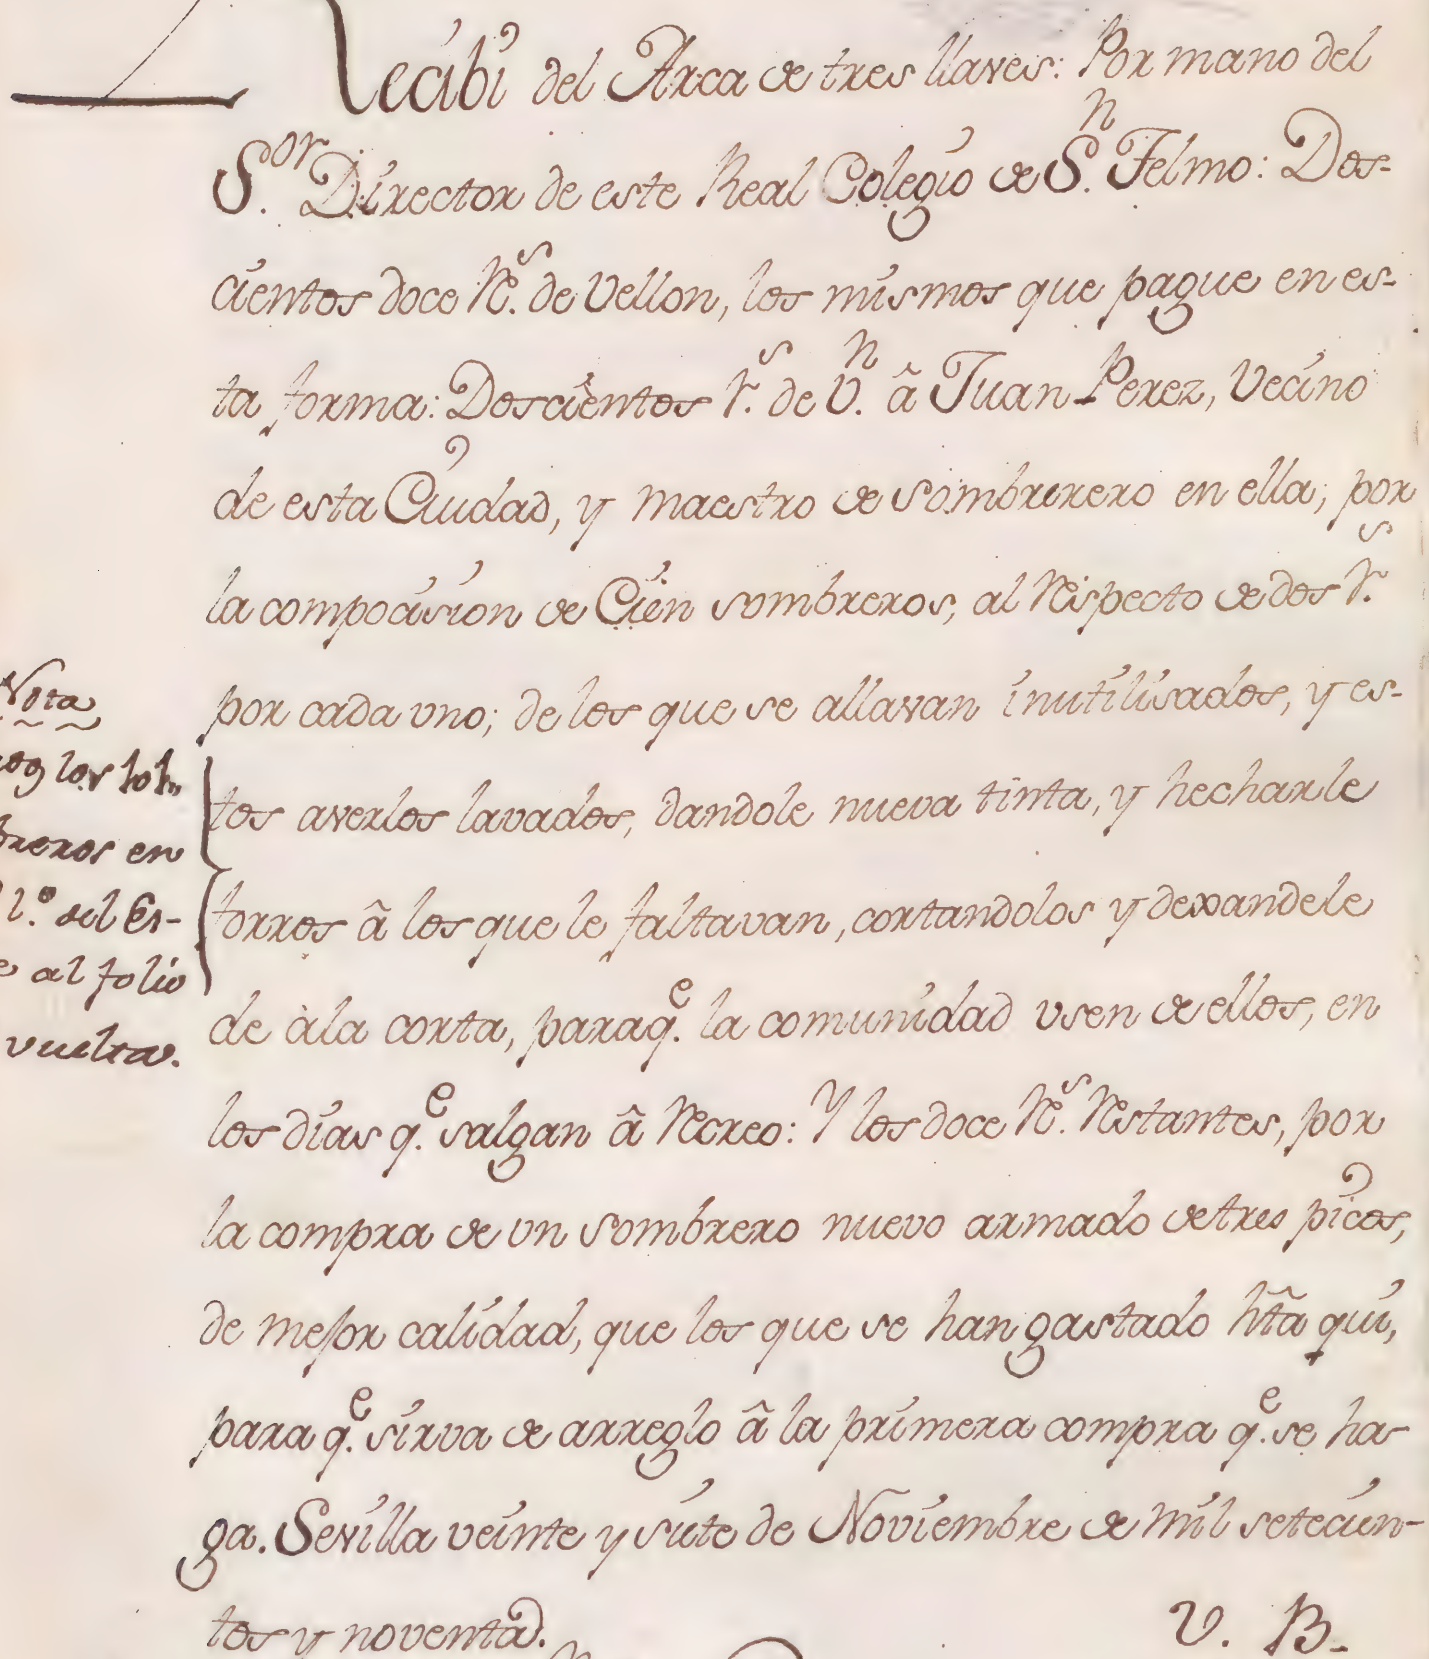 Recibi del Arca de tres llaves: Por mano del
S.or Director de este Real Colegio de S.n Telmo: Dos-
cientos doce R.s de Vellon, los mismos que pague en es-
ta forma: Doscientos r.s de V.n â Juan Perez, Vecino
de esta Ciudad, y maestro de sombrerero en ella; por
la compocision de Cien sombreros, al respecto de dos r.s
por cada vno; de los que se allavan inutilisados, y es-
tos averlos lavados, dandole nueva tinta, y hecharle
forros â los que le faltavan, cortandolos y dexandole
de àla corta, paraq.e la comunidad vsen de ellos, en
los dias q.e salgan â recreo: Y los doce R.s restantes, por
la compra de vn sombrero nuevo armado de tres picos,
de mejor calidad, que los que se han gastado hta qui,
para q.e sirva de arreglo â la primera compra q.e se ha-
ga. Sevilla veinte y siete de Noviembre de mil setecien-
tos y noventa.
V. B.
Nota
los
breros en
l.o del Es-
al folio
vuelta.